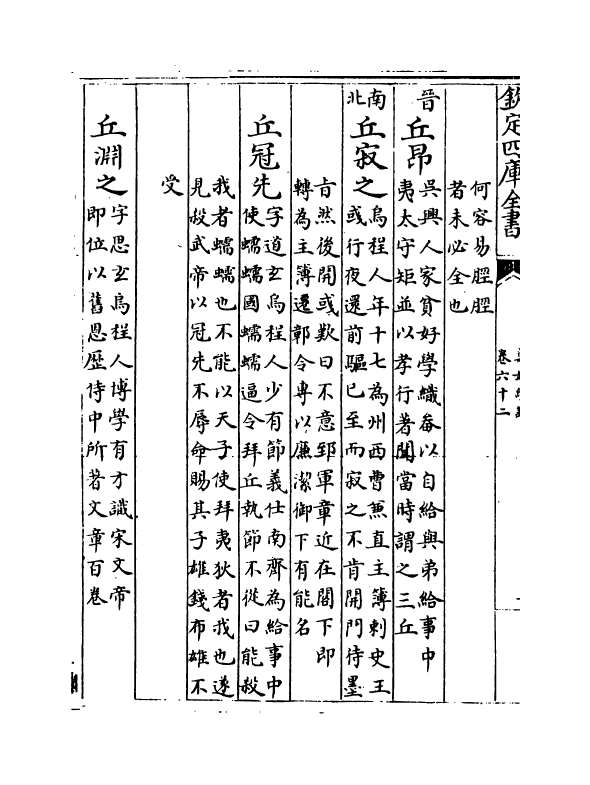 欽定四庫全書
卷六十二
何容易脛脛
者未必全也
晉
丘昂
吳興人家貧好學織畚以自給與弟給事中
夷太守矩並以孝行著聞當時謂之三丘
南北
丘寂之
烏程人年十七為州西曹兼直主簿刺史王
或行夜還前驅已至而寂之不肯開門待墨
旨然後開彧歎曰不意郅軍章近在閤下即
轉為主簿還鄣令專以廉潔御下有能名
丘冠先
字道玄烏程人少有節義仕南齊為給事中
使蠕蠕國蠕蠕逼令拜丘執節不從曰能殺
我者蠕蠕也不能以天子使拜夷狄者我也遂
見殺武帝以冠先不辱命賜其子雄錢布雄不
受
丘淵之
字思玄烏程人博學有才識宋文帝
即位以舊恩歷侍中所著文章百卷